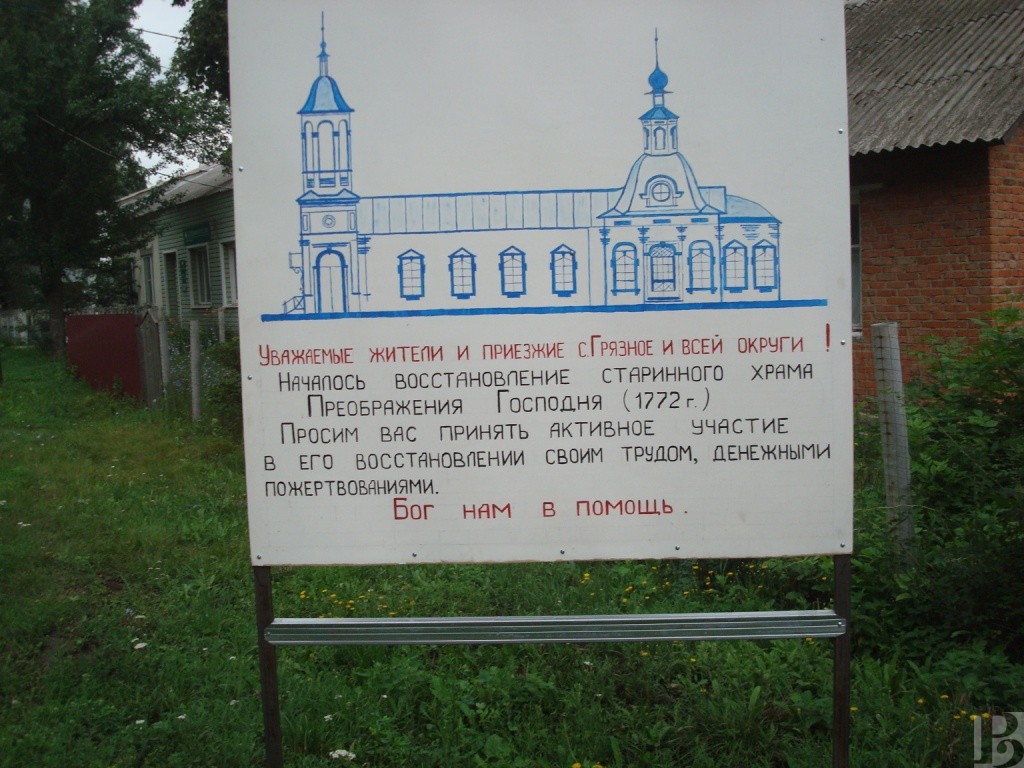 Уважаемые жители и приезжие с.Грязное и всей округи !
Началось восстановление старинного храма
Преображения Господня (1772 г.)
Просим вас принять активное участие
в его восстановлении своим трудом, денежными
пожертвованиями.
Бог нам в помощь.